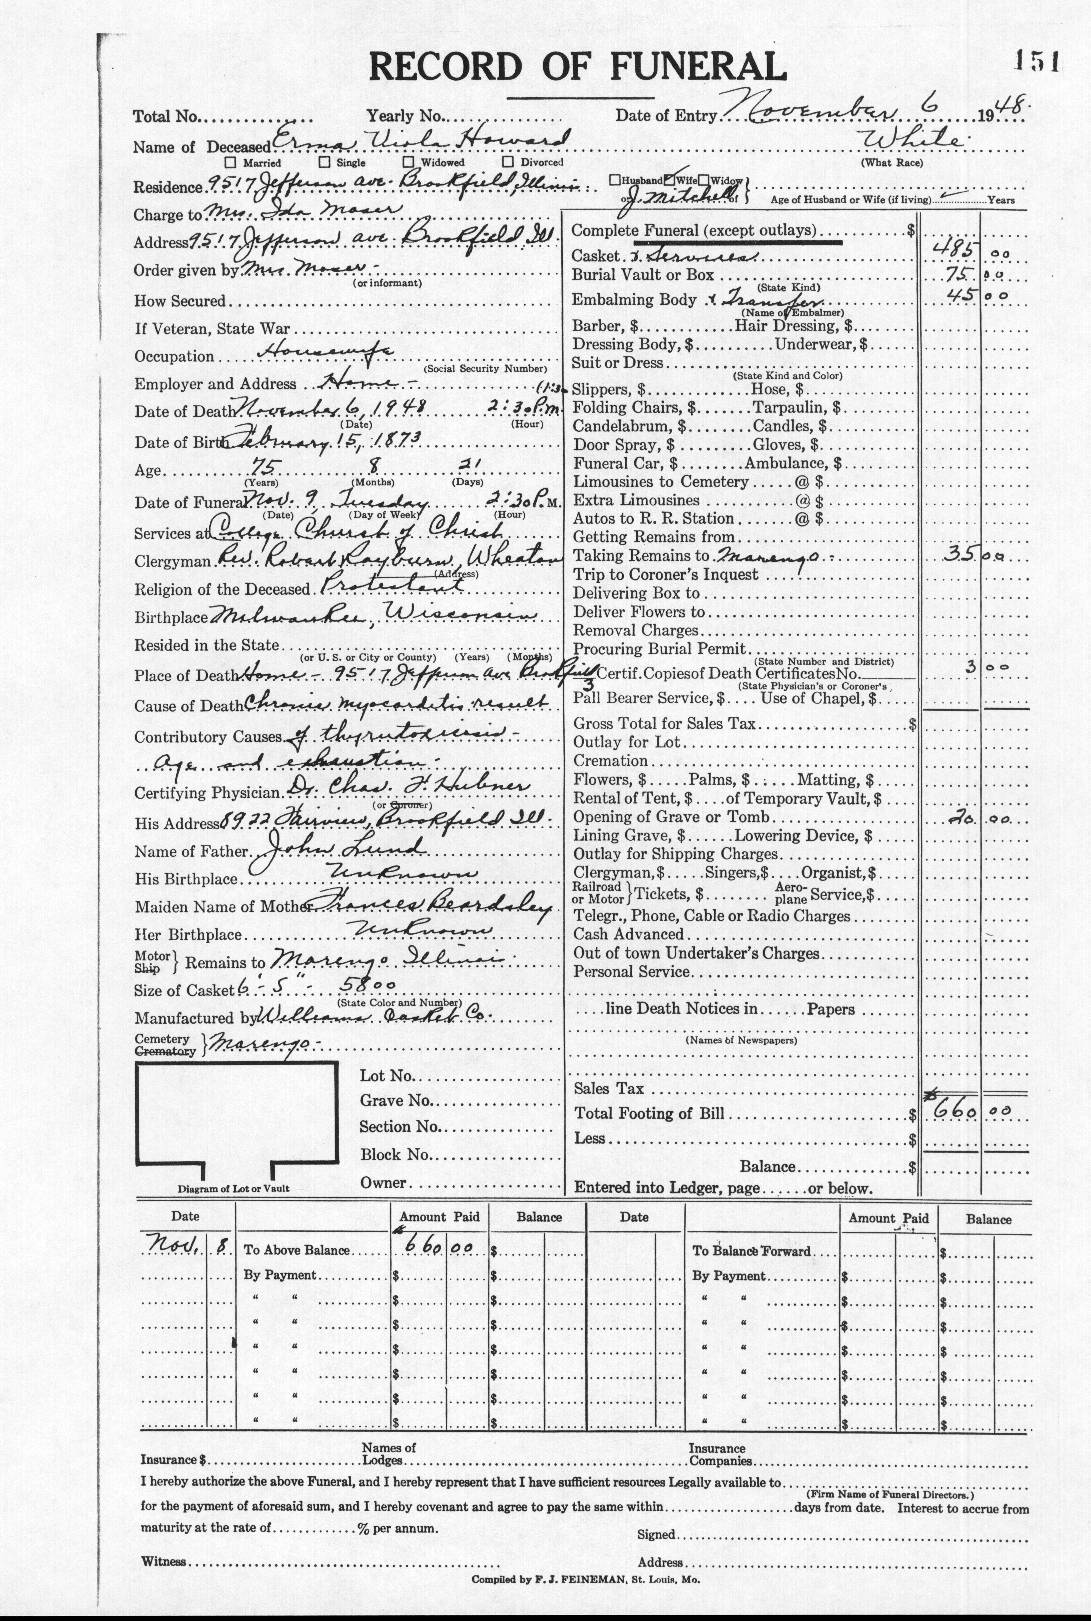 151
RECORD OF FUNERAL
Total No. Yearly No. Date of Entry November 6 1948.
Name of Deceased Erma Viola Howard White
☐ Married ☐ Single ☐ Widowed ☐ Divorced (What Race)
Residence 9517 Jefferson ave. Brookfield, Illinois ☐ Husband ☑ Wife ☐ Widow
or J. Mitchell of Age of Husband or Wife (if living) Years
Charge to Mrs. Ida Moser
Address 9517 Jefferson ave. Brookfield Ill.
Order given by Mrs. Moser -
(or informant)
How Secured
If Veteran, State War
Occupation Housewife
(Social Security Number)
Employer and Address Home -
Date of Death November 6, 1948 2:30 P.m.
(Date) (Hour)
Date of Birth February 15, 1873
Age 75 8 21
(Years) (Months) (Days)
Date of Funeral Nov. 9, Tuesday 2:30 P.M.
(Date) (Day of Week) (Hour)
Services at College Church of Christ
Clergyman Rev. Robert Rayburn, Wheaton
(Address)
Religion of the Deceased Protestant
Birthplace Milwaukee, Wisconsin
Resided in the State
(or U. S. or City or County) (Years) (Months)
Place of Death Home - 9517 Jefferson ave Brookfield
Cause of Death Chronic myocarditis result
Contributory Causes of thyrotoxicosis -
Age and exhaustion -
Certifying Physician Dr. Chas. F. Hubner
(or Coroner)
His Address 8922 Fairview, Brookfield Ill.
Name of Father John Lund
His Birthplace Unknown
Maiden Name of Mother Frances Beardsley
Her Birthplace Unknown
Motor Ship } Remains to Marengo Illinois
Size of Casket 6'-5" - 5800
(State Color and Number)
Manufactured by Williams Casket Co.
Cemetery Crematory } Marengo -
Lot No.
Grave No.
Section No.
Block No.
Owner
Diagram of Lot or Vault
Complete Funeral (except outlays) $
Casket & Services 485 00
Burial Vault or Box 75 00
(State Kind)
Embalming Body & Transfer 45 00
(Name of Embalmer)
Barber, $ Hair Dressing, $
Dressing Body, $ Underwear, $
Suit or Dress
(State Kind and Color)
Slippers, $ Hose, $
Folding Chairs, $ Tarpaulin, $
Candelabrum, $ Candles, $
Door Spray, $ Gloves, $
Funeral Car, $ Ambulance, $
Limousines to Cemetery @ $
Extra Limousines @ $
Autos to R. R. Station @ $
Getting Remains from
Taking Remains to Marengo - 35 00
Trip to Coroner's Inquest
Delivering Box to
Deliver Flowers to
Removal Charges
Procuring Burial Permit
(State Number and District)
3 Certif. Copies of Death Certificates No. 3 00
(State Physician's or Coroner's
Pall Bearer Service, $ Use of Chapel, $
Gross Total for Sales Tax $
Outlay for Lot
Cremation
Flowers, $ Palms, $ Matting, $
Rental of Tent, $ of Temporary Vault, $
Opening of Grave or Tomb 20 00
Lining Grave, $ Lowering Device, $
Outlay for Shipping Charges
Clergyman, $ Singers, $ Organist, $
Railroad or Motor } Tickets, $ Aeroplane Service, $
Telegr., Phone, Cable or Radio Charges
Cash Advanced
Out of town Undertaker's Charges
Personal Service
line Death Notices in Papers
(Names of Newspapers)
Sales Tax
Total Footing of Bill $ 660 00
Less $
Balance $
Entered into Ledger, page or below.
Date Amount Paid Balance Date Amount Paid Balance
Nov. 8 To Above Balance 660 00 $ To Balance Forward $
By Payment $ $ By Payment $ $
" " $ $ " " $ $
" " $ $ " " $ $
" " $ $ " " $ $
" " $ $ " " $ $
" " $ $ " " $ $
" " $ $ " " $ $
Insurance $ Names of Lodges Insurance Companies
I hereby authorize the above Funeral, and I hereby represent that I have sufficient resources Legally available to
(Firm Name of Funeral Directors.)
for the payment of aforesaid sum, and I hereby covenant and agree to pay the same within days from date. Interest to accrue from
maturity at the rate of % per annum.
Signed
Witness Address
Compiled by F. J. FEINEMAN, St. Louis, Mo.